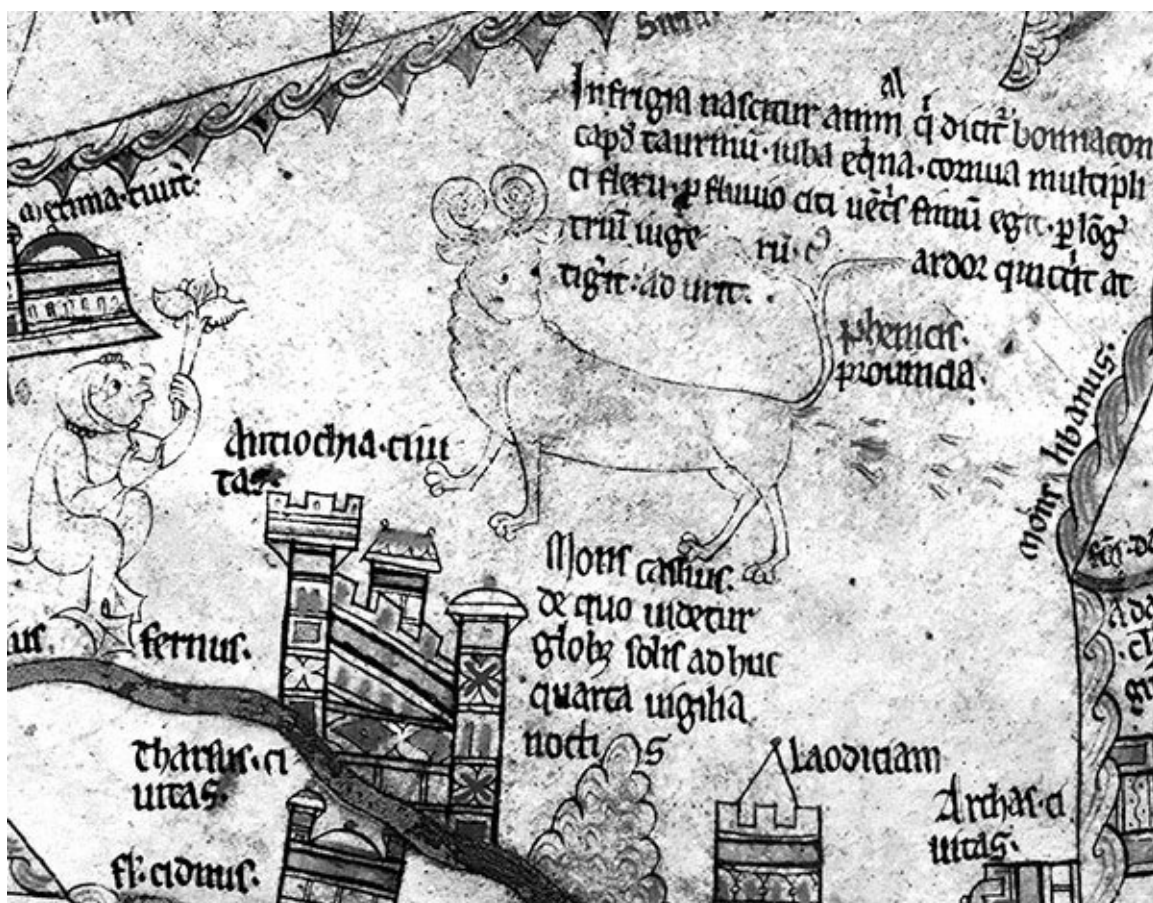 al
Infrigia nascitur anim qi dicit bonnacon
capd taurinu · iuba eqina · cornua multipli
ci flexu · p fluuio citi uetris fimu egit · p log
triu iuge ru · c ardor quicqit at
tigrit · ad urit ·
ciuit ·
phenicis ·
prouincia ·
mons libanus ·
Antiochia · ciui
tas ·
Mons cassius ·
de quo uidetur
glob solis ad huc
quarta uigilia
nocti s
us · fernus ·
Tharsus · ci
uitas ·
fl · cidnus ·
Laodiciam
Archas · ci
uitas ·